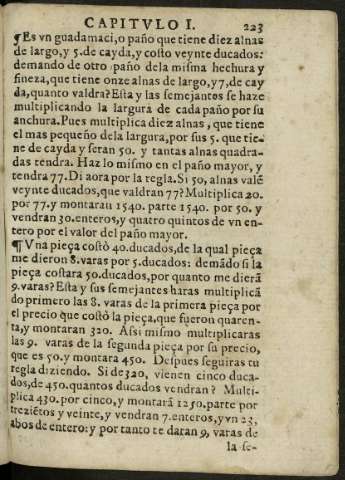 CAPITVLO I. 223
¶Es vn guadamaci, o paño que tiene diez alnas
de largo, y 5. de cayda, y costo veynte ducados:
demando de otro paño dela misma hechura y
fineza, que tiene onze alnas de largo, y 7, de cay
da, quanto valdra? Esta y las semejantes se haze
multiplicando la largura de cada paño por su
anchura. Pues multiplica diez alnas, que tiene
el mas pequeño de la largura, por sus 5. que tie-
ne de cayda y seran 50. y tantas alnas quadra-
das tendra. Haz lo mismo en el paño mayor, y
tendra 77. Di aora por la regla. Si 50, alnas valē
veynte ducados, que valdran 77? Multiplica 20.
por 77. y montaran 1540. parte 1540. por 50. y
vendran 30. enteros, y quatro quintos de vn en-
tero por el valor del paño mayor.
¶ Vna pieça costò 40. ducados, de la qual pieça
me dieron 8. varas por 5. ducados: demādo si la
pieça costara 50. ducados, por quanto me dierā
9. varas? Esta y sus semejantes haras multiplicā
do primero las 8. varas de la primera pieça por
el precio que costò la pieça, que fueron quaren-
ta, y montaran 320. Assi mismo multiplicaras
las 9. varas de la segunda pieça por su precio,
que es 50. y montara 450. Despues seguiras tu
regla diziendo. Si de 320, vienen cinco duca-
dos, de 450. quantos ducados vendran? Multi-
plica 430. por cinco, y montarà 1250. parte por
treziētos y veinte, y vendran 7. enteros, y vn 23,
abos de entero: y por tanto te daran 9, varas de
la se-